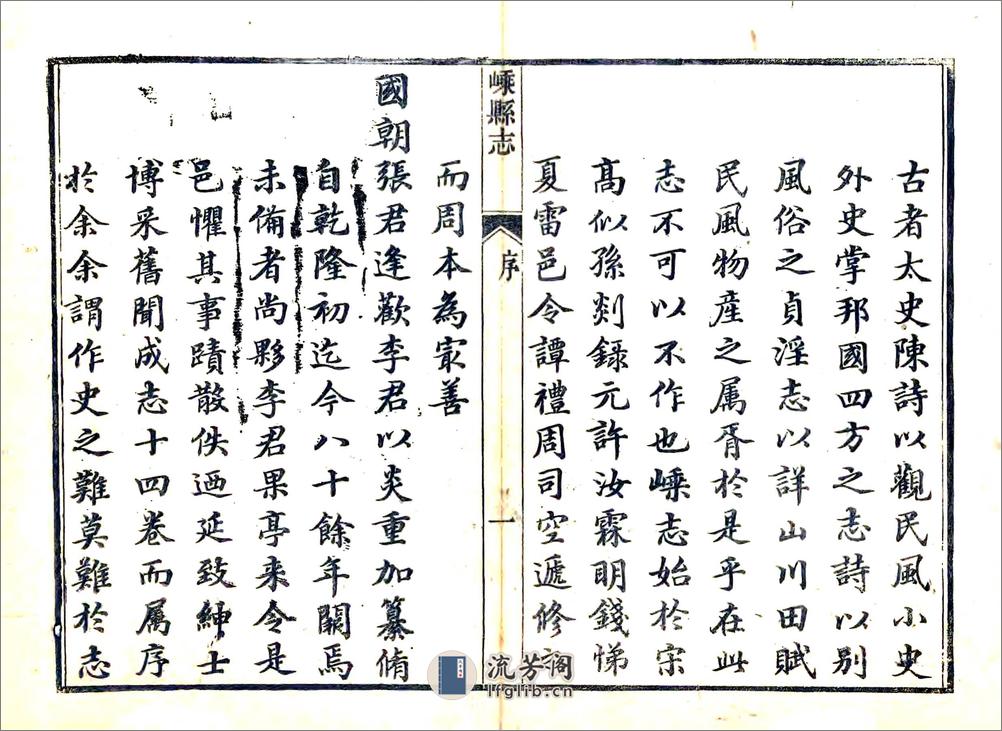 古者太史陳詩以觀民風小史
外史掌邦國四方之志詩以別
風俗之貞淫志以詳山川田賦
民風物產之属胥於是乎在此
志不可以不作也嵊志始於宋
髙似孫剡錄元許汝霖明錢悌
夏雷邑令譚禮周司空遞修
嵊縣志
序
一
而周本為㝡善
國朝張君逢歡李君以炎重加纂脩
自乾隆初迄今八十餘年闕焉
未備者尚夥李君果亭来令是
邑懼其事蹟散佚迺延致紳士
博采舊聞成志十四卷而属序
於余余謂作史之難莫難於志
流芳閣
lfglib.cn